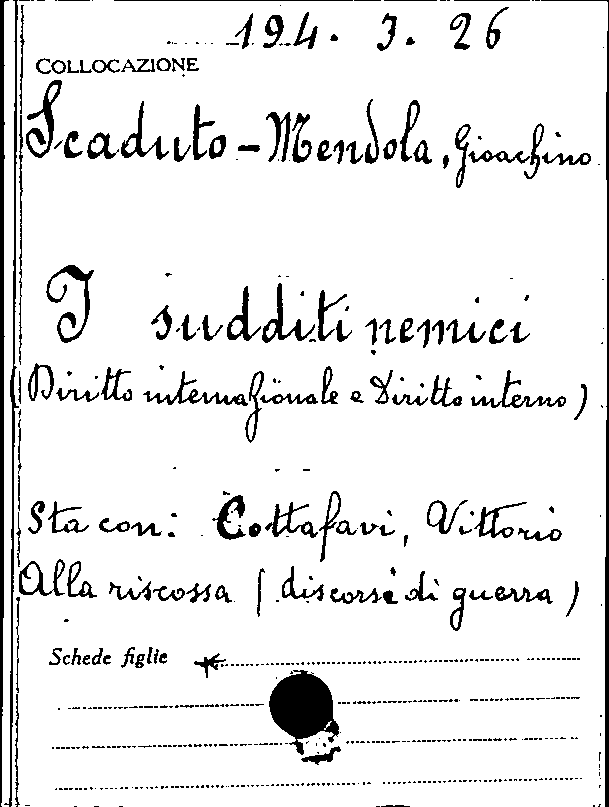 194. 3. 26
COLLOCAZIONE
Scaduto-Mendola, Gioachino
I sudditi nemici
(Diritto internazionale e Diritto interno)
Sta con: Cottafavi, Vittorio
Alla riscossa (discorsi di guerra)
Schede figlie